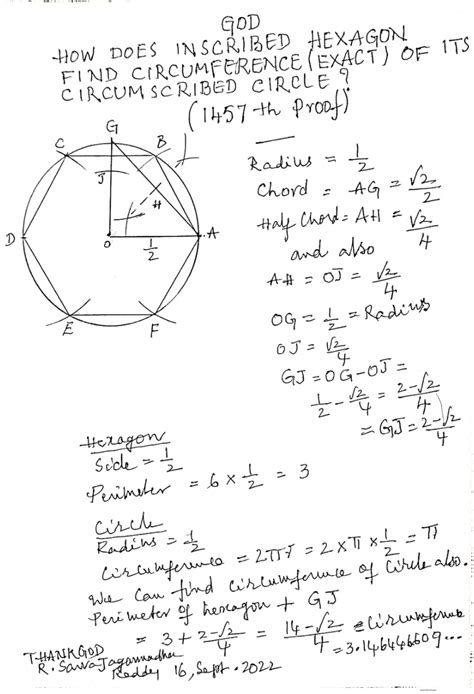 GOD
HOW DOES INSCRIBED HEXAGON
FIND CIRCUMFERENCE (EXACT) OF ITS
CIRCUMSCRIBED CIRCLE ?
(1457-th Proof)
G
C
B
J
H
D
O
1/2
A
E
F
Radius = 1/2
Chord = AG = √2/2
Half Chord = AH = √2/4
and also
AH = OJ = √2/4
OG = 1/2 = Radius
OJ = √2/4
GJ = OG - OJ =
1/2 - √2/4 = 2-√2/4
= GJ = 2-√2/4
Hexagon
Side = 1/2
Perimeter = 6 × 1/2 = 3
Circle
Radius = 1/2
Circumference = 2πr = 2 × π × 1/2 = π
We can find circumference of Circle also.
Perimeter of hexagon + GJ
= 3 + 2-√2/4 = 14-√2/4 = Circumference
= 3.146446609...
THANK GOD
R. Sarva Jagannadha
Reddy 16, Sept. 2022